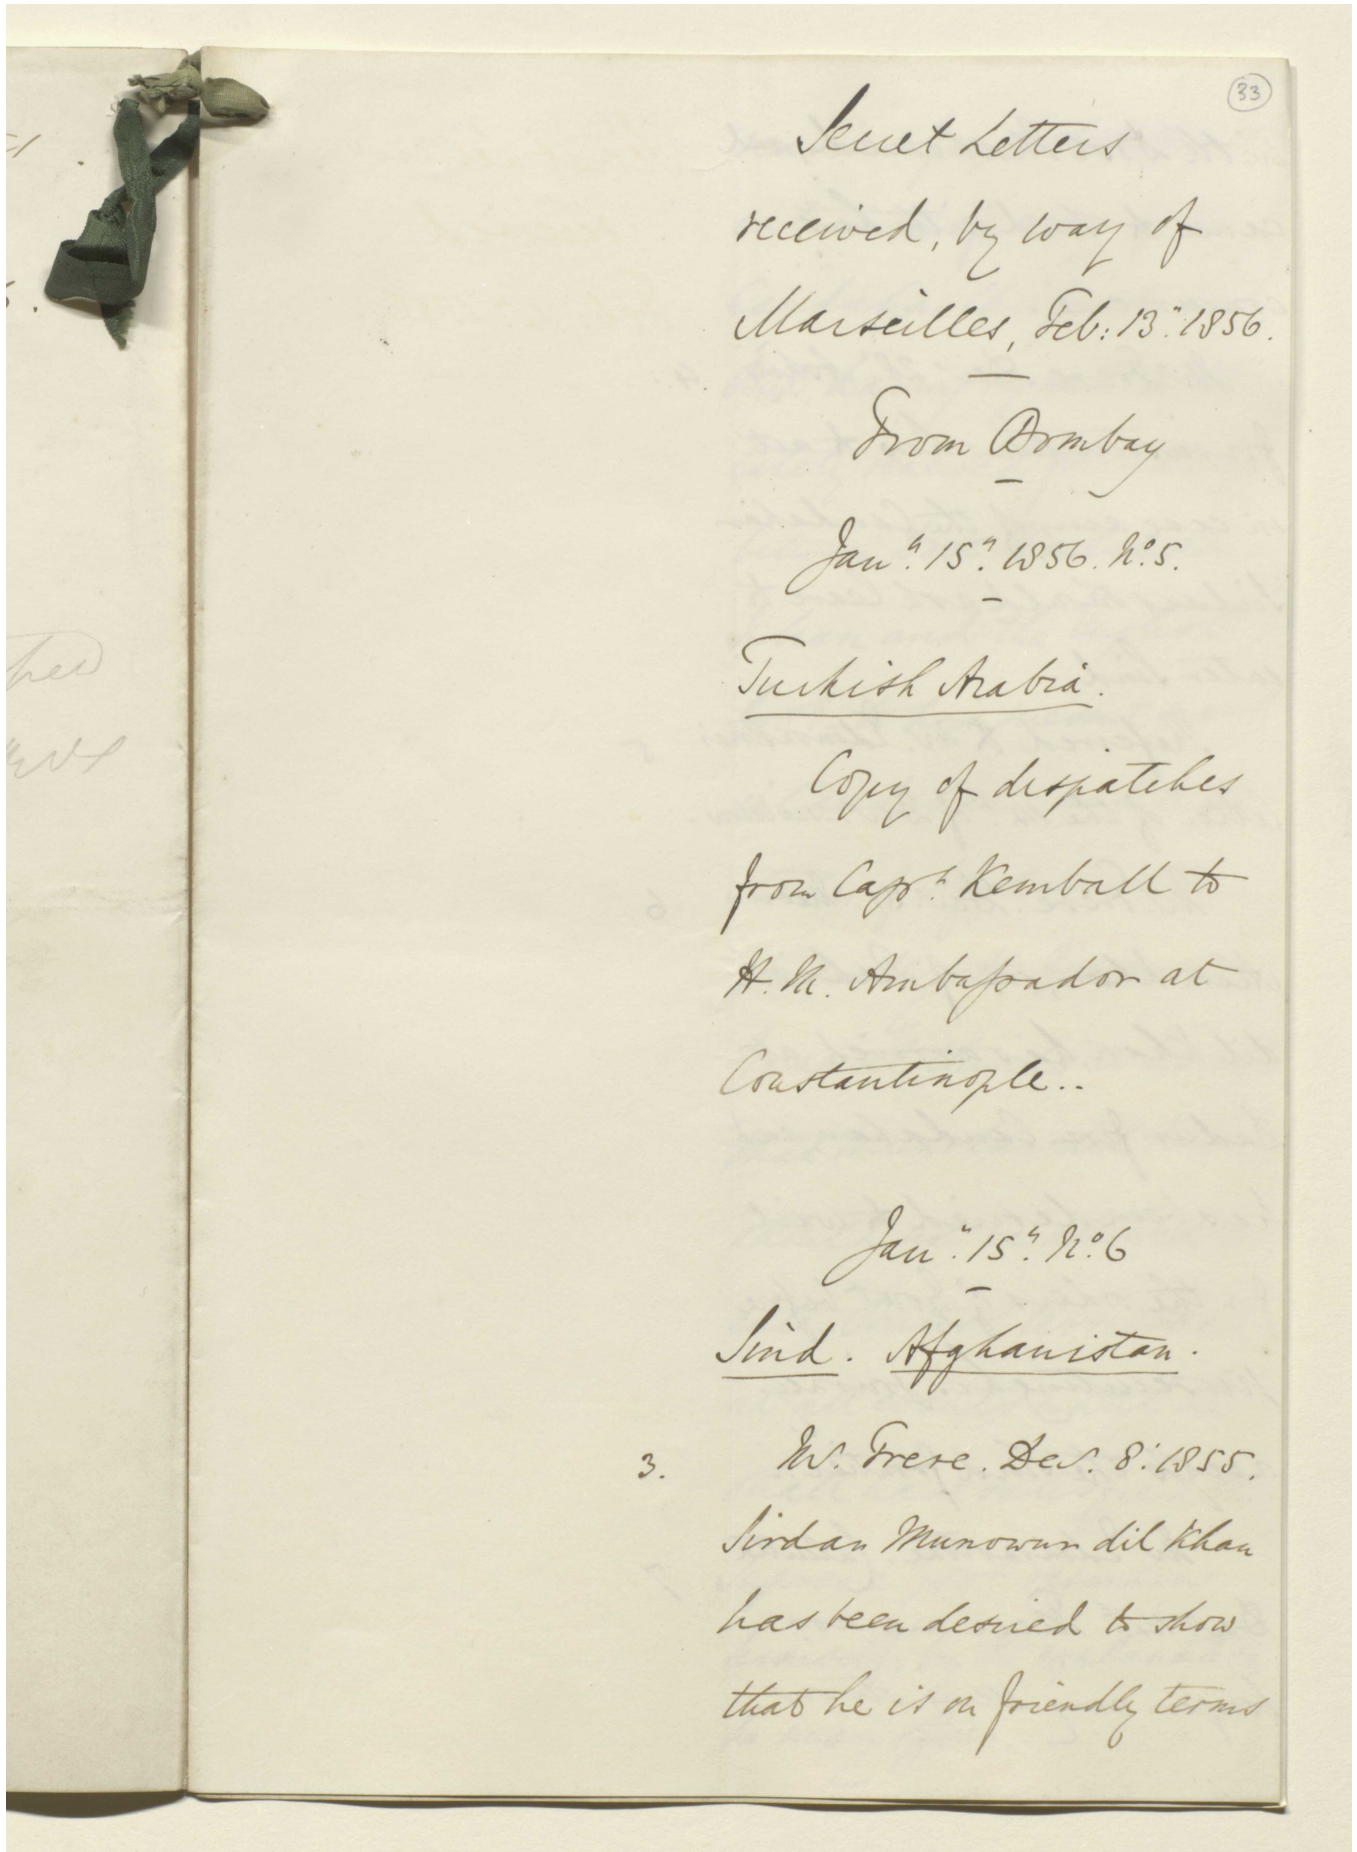 33
Secret Letters
received, by way of
Marseilles, Feb: 13". 1856.
From Bombay
Jan". 15". 1856. No. 5.
Turkish Arabia.
Copy of dispatches
from Capt. Kemball to
H. M. Ambassador at
Constantinople..
Jan". 15". No. 6
Sind. Afghanistan.
3. Mr. Frere. Decr. 8: 1855.
Sirdar Munowur dil Khan
has been desired to show
that he is on friendly terms